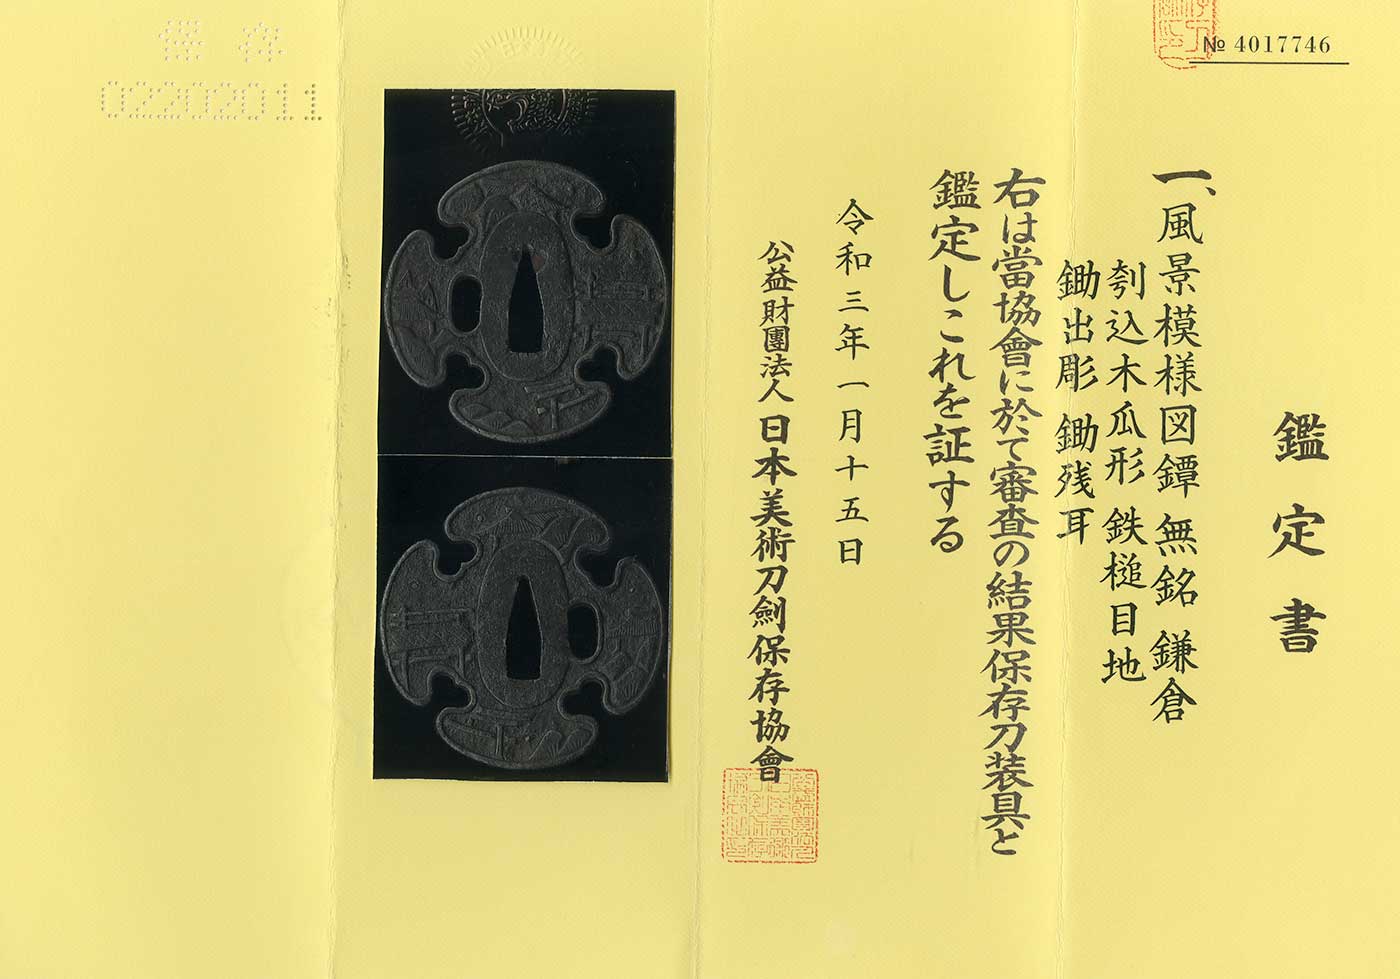 № 4017746
鑑定書
一、風景模様図鐔 無銘 鎌倉
刳込木瓜形 鉄槌目地
鋤出彫 鋤残耳
右は當協會に於て審査の結果保存刀装具と
鑑定しこれを証する
令和三年一月十五日
公益財團法人 日本美術刀劍保存協會
保存
02202011